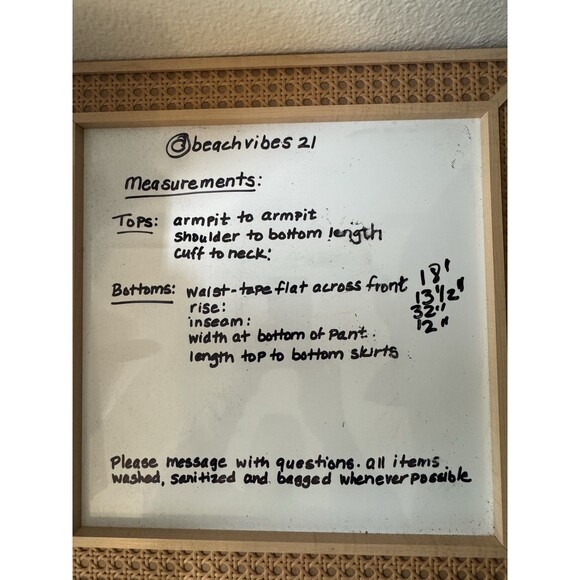 @beachvibes 21
Measurements:
Tops: armpit to armpit
shoulder to bottom length
cuff to neck:
Bottoms: waist-tape flat across front 18"
rise: 13 1/2"
inseam: 32"
width at bottom of pant. 12"
length top to bottom skirts
Please message with questions. all items.
washed, sanitized and bagged whenever possible